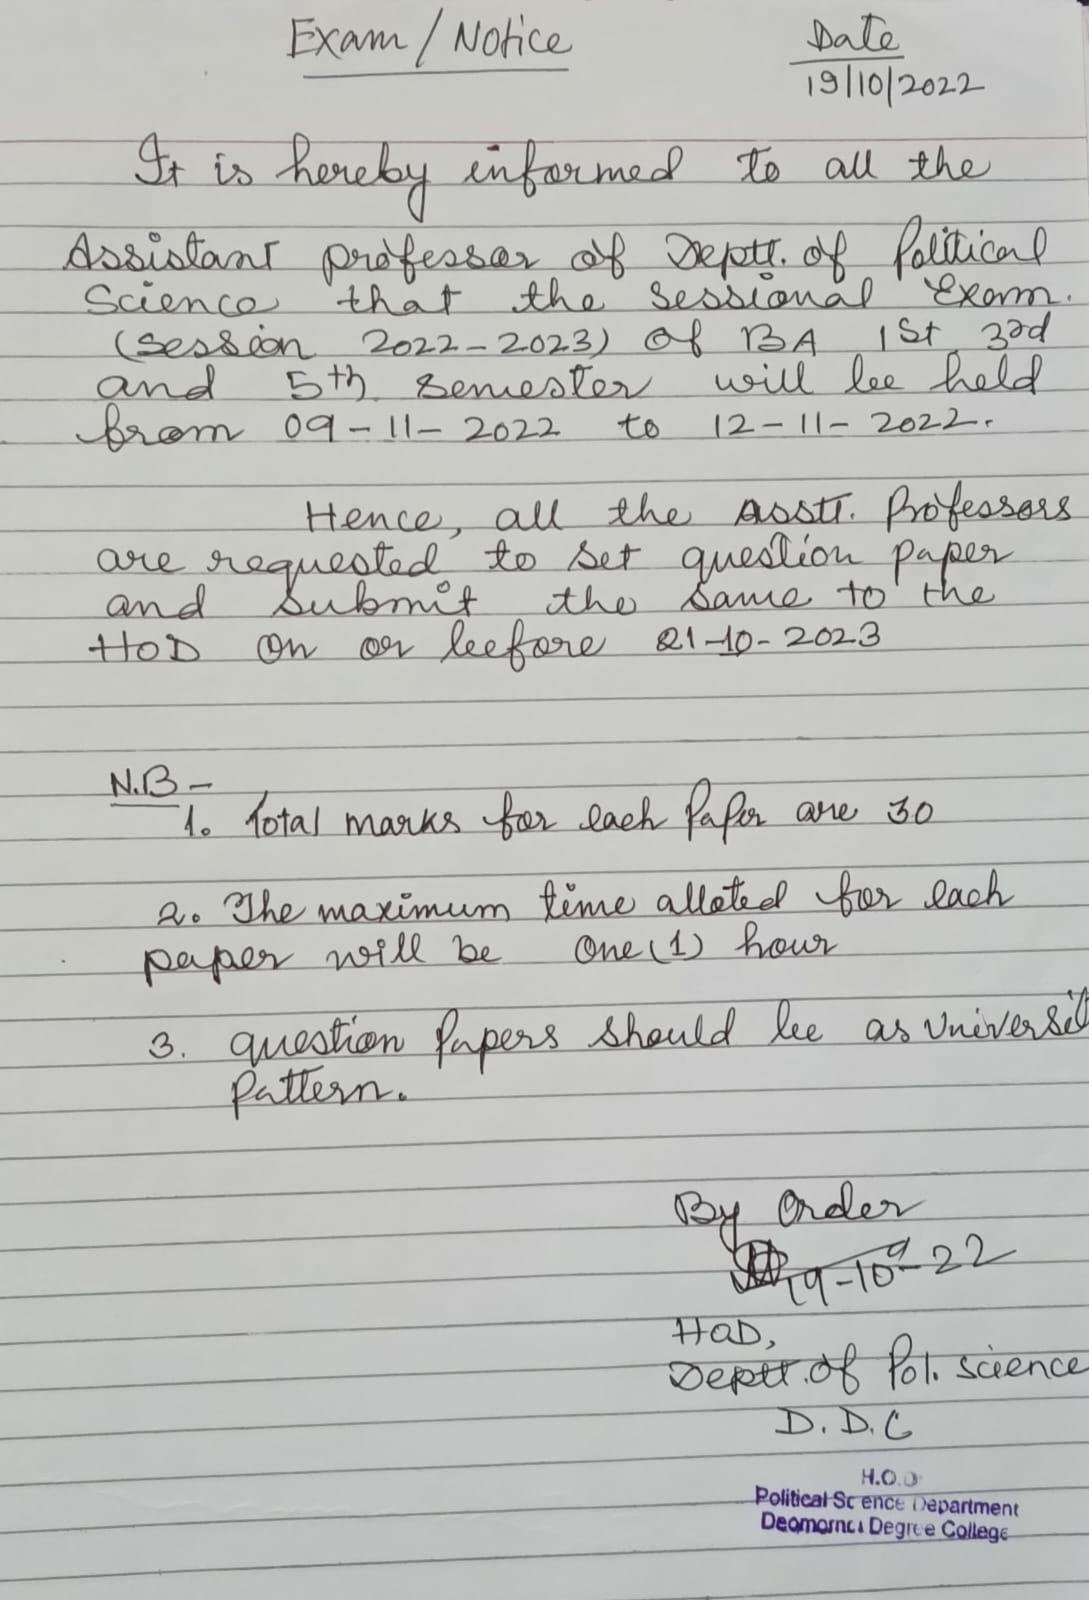 Exam/Notice
Date
19/10/2022
It is hereby informed to all the
Assistant professor of Deptt. of Political
Science that the sessional Exam.
(session 2022-2023) of BA 1st 3rd
and 5th semester will be held
from 09-11-2022 to 12-11-2022.
Hence, all the Asstt. Professors
are requested to set question paper
and submit the same to the
HOD on or before 21-10-2023
N.B-
1. Total marks for each Paper are 30
2. The maximum time alloted for each
paper will be One (1) hour
3. question Papers should be as Universit
Pattern.
By Order
19-10-22
HOD,
Deptt. of Pol. science
D.D.C
H.O.D
Political Science Department
Deomornoi Degree College